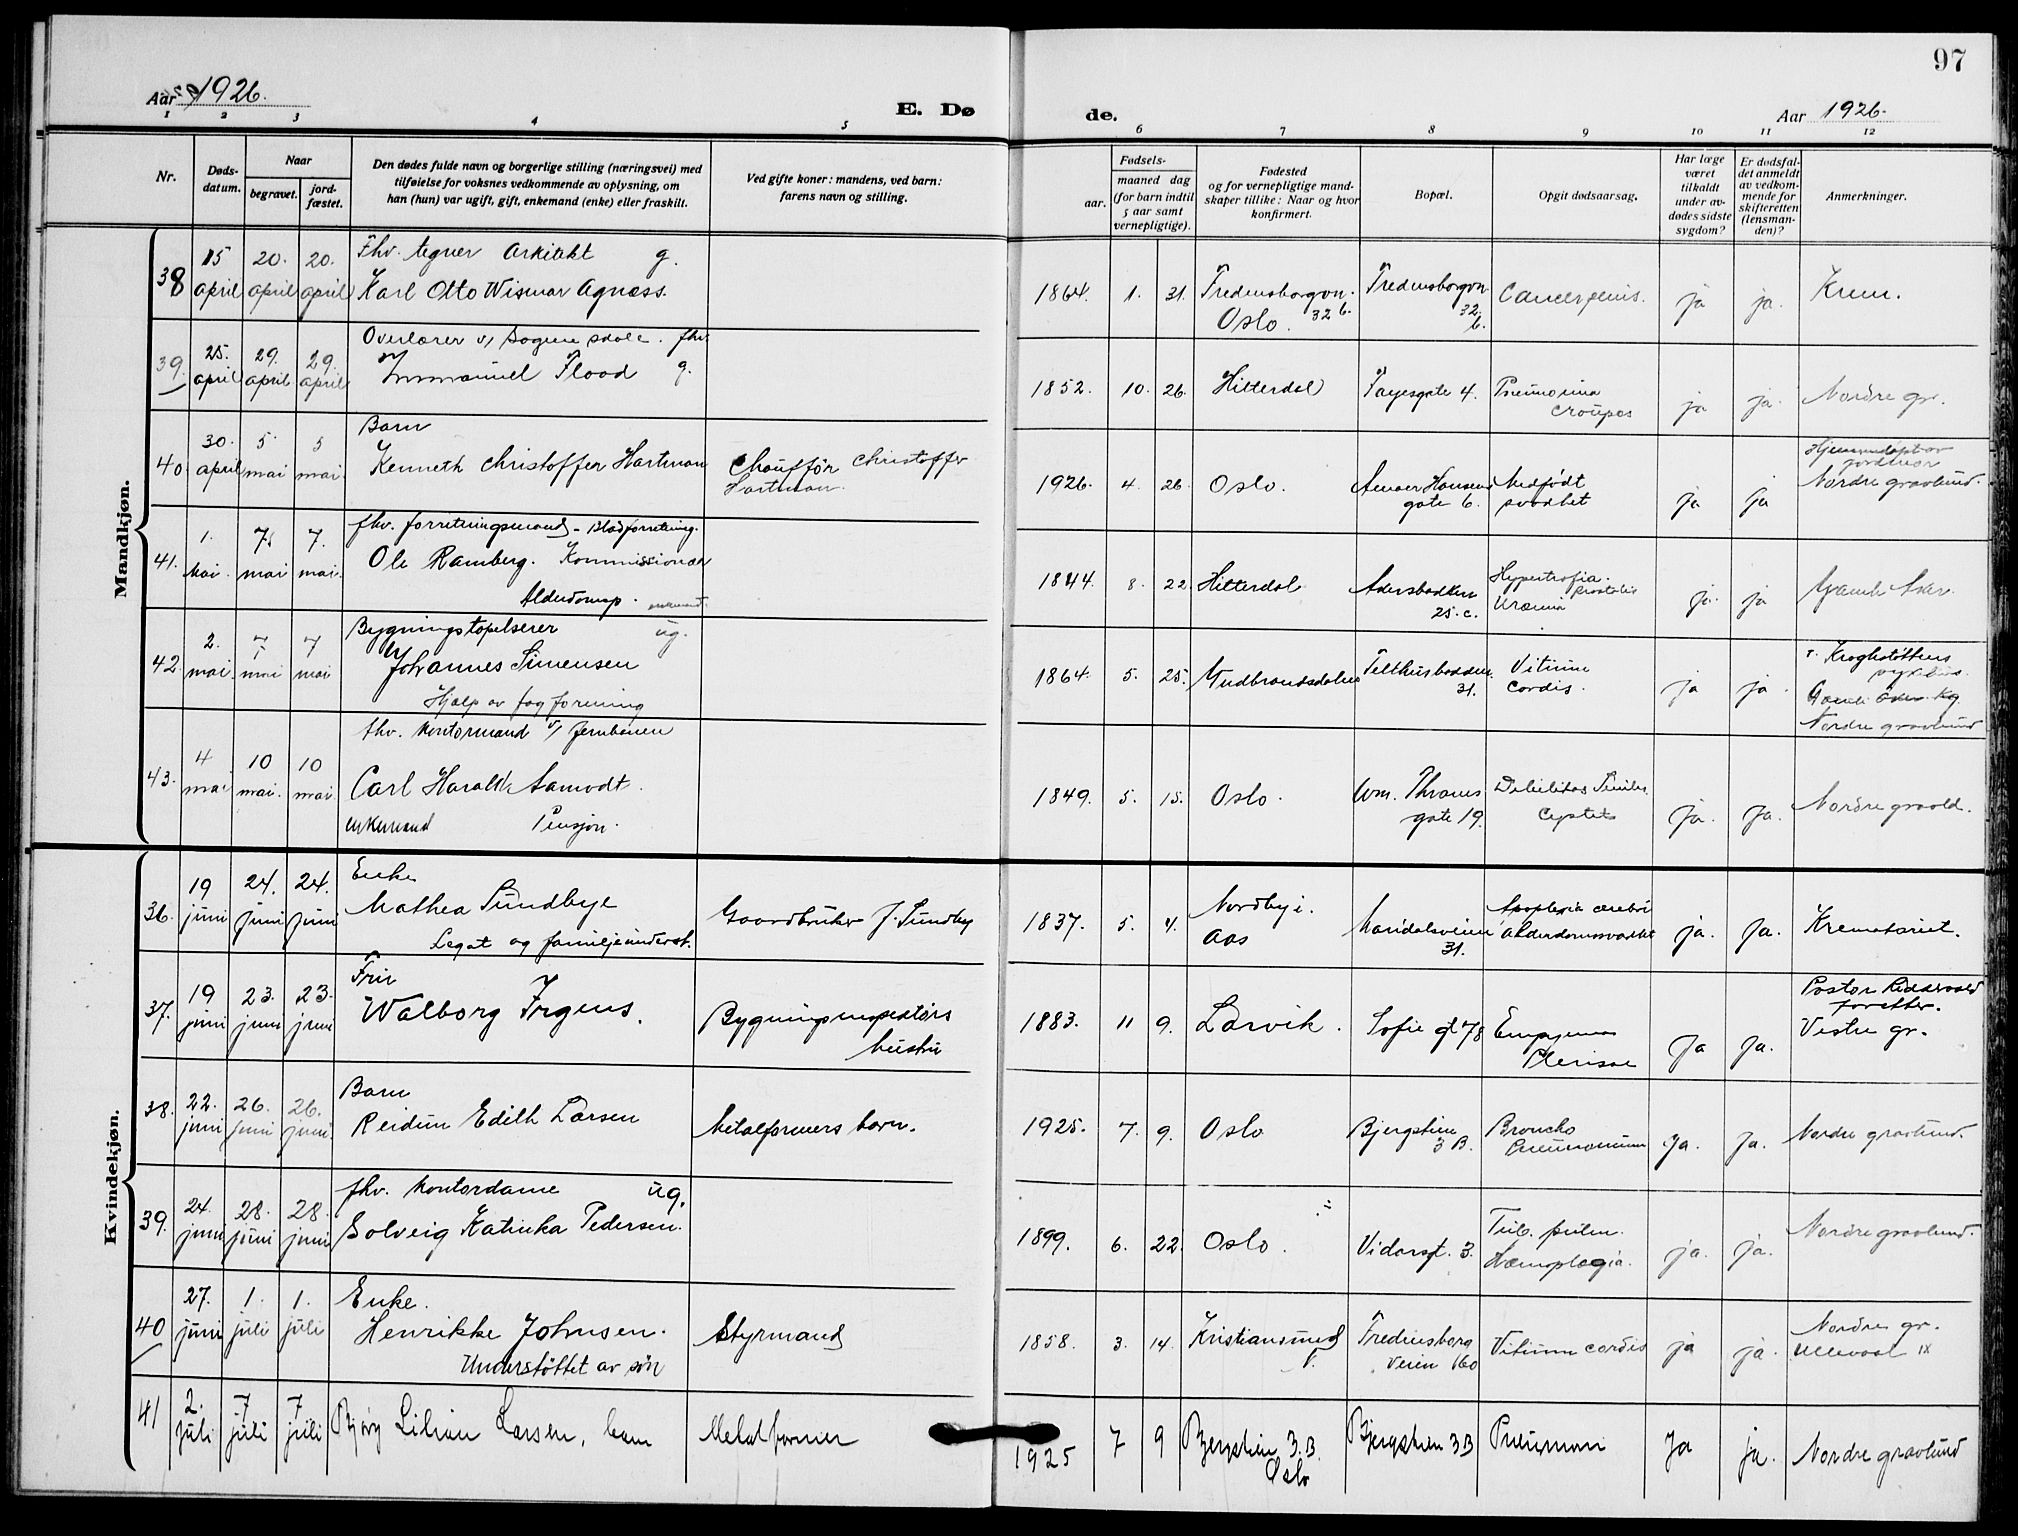 97
Aar 1926.
E. Dø
de.
Aar 1926.
1 2 3 4 5 6 7 8 9 10 11 12
Nr.
Døds-
datum.
Naar
begravet.
jord-
fæstet.
Den dødes fulde navn og borgerlige stilling (næringsvei) med
tilføielse for voksnes vedkommende av oplysning, om
han (hun) var ugift, gift, enkemand (enke) eller fraskilt.
Ved gifte koner: mandens, ved barn:
farens navn og stilling.
Fødsels-
aar.
maaned dag
(for barn indtil
5 aar samt
vernepligtige).
Fødested
og for vernepligtige mand-
skaper tillike: Naar og hvor
konfirmert.
Bopæl.
Opgit dødsaarsag.
Har læge
været
tilkaldt
under av-
dødes sidste
sygdom?
Er dødsfal-
det anmeldt
av vedkom-
mende for
skifteretten
(lensman-
den)?
Anmerkninger.
Mandkjøn.
38
15 april
20. april
20. april
Fhv. tegner Arkitekt g.
Karl Otto Wismar Agnæss.
1864. 1. 31.
Fredensborgvn. 32 b.
Oslo.
Fredensborgvn
32 b.
Cancer penis.
ja
ja.
Krem.
39.
25. april
29. april
29. april
Overlærer v/ Sagene skole. fhv.
Immanuel Flood g.
1852. 10. 26.
Hitterdal
Fayesgate 4.
Pneumonia
croupos
ja
ja.
Nordre gr.
40.
30. april
5. mai
5 mai.
Barn
Kenneth Christoffer Hartman
Chauffør Christoffer
Hartman.
1926. 4. 26.
Oslo.
gate 6.
Medfødt
svakhet
ja
ja
Nordre gravlund.
41.
1. Mai.
7. mai
7. mai.
fhv. forretningsmand - Bladforretning.
Ole Ramberg. Kommissionær
Aldersdomsp.
1844. 8. 22.
Hitterdal
Akersbakken
25. c.
Hypertrofia
prostatis
Uræmia
ja.
ja
Gamle Aker.
42.
2. mai.
7 mai
7 mai
ug.
Johannes Simensen
Hjælp av fagforening
1864. 5. 25.
Gudbrandsdalen
Telthusbakken
31.
Vitium
Cordis.
ja
ja.
Gamle Aker kg.
Nordre gravlund
43.
4 mai
10 mai.
10 mai
fhv. Kontormand v/ Jernbanen
Carl Harald Aamodt.
enkemand Pensjon.
1849. 5. 15.
Oslo.
Wm. Thranes
gate 19.
Debilitas Senilis
Cystit
ja.
ja.
Nordre gravld.
Kvindekjøn.
36.
19 juni
24. juni
24. juni
Enke
Mathea Sundbye
Legat og familjeunderst.
Gaardbruker J. Sundby
1837. 5. 4.
Nordby i.
Aas
Maridalsveien
31.
Apoplexia cerebri
Alderdomssvakhet
ja.
ja.
Krematoriet.
37.
19 juni
23. juni
23. juni
Fru
Walborg Irgens.
Bygningsinspektørs
hustru
1883. 11 9.
Larvik.
Sofie gt 78
Empyema
Plerisae
ja
ja.
Pastor Riddervold
forretter.
Vestre gr.
38.
22. juni
26. juni
26. juni.
Barn
Reidun Edith Larsen
Metalformers barn.
1925. 7. 9.
Oslo
Bjergstien
3 B.
Broncho
Pneumonium
ja.
ja.
Nordre gravlund.
39.
24. juni
28. juni
28. juni
fhv. Kontordame ug.
Solveig Katinka Pedersen.
1899. 6. 22.
Oslo.
Vidarsgt. 3.
Tub. pulm.
ja.
ja.
Nordre gravlund.
40
27. juni
1. juli
1. juli
Enke.
Henrikke Johnsen.
Understøttet av søn
Styrmand
1858. 3. 14.
Kristiansund
N.
Fredensborg
veien 160
Vitium cordis
ja
ja.
Nordre gr.
Ullevaal IX
41
2. juli
7 juli
7 juli
Bjørg Lilian Larsen, barn
Metalformer
1925 7 9
Bjergstien 3.B.
Oslo
Bjergstien 3B
Pneumoni
Ja
ja.
Nordre gravlund